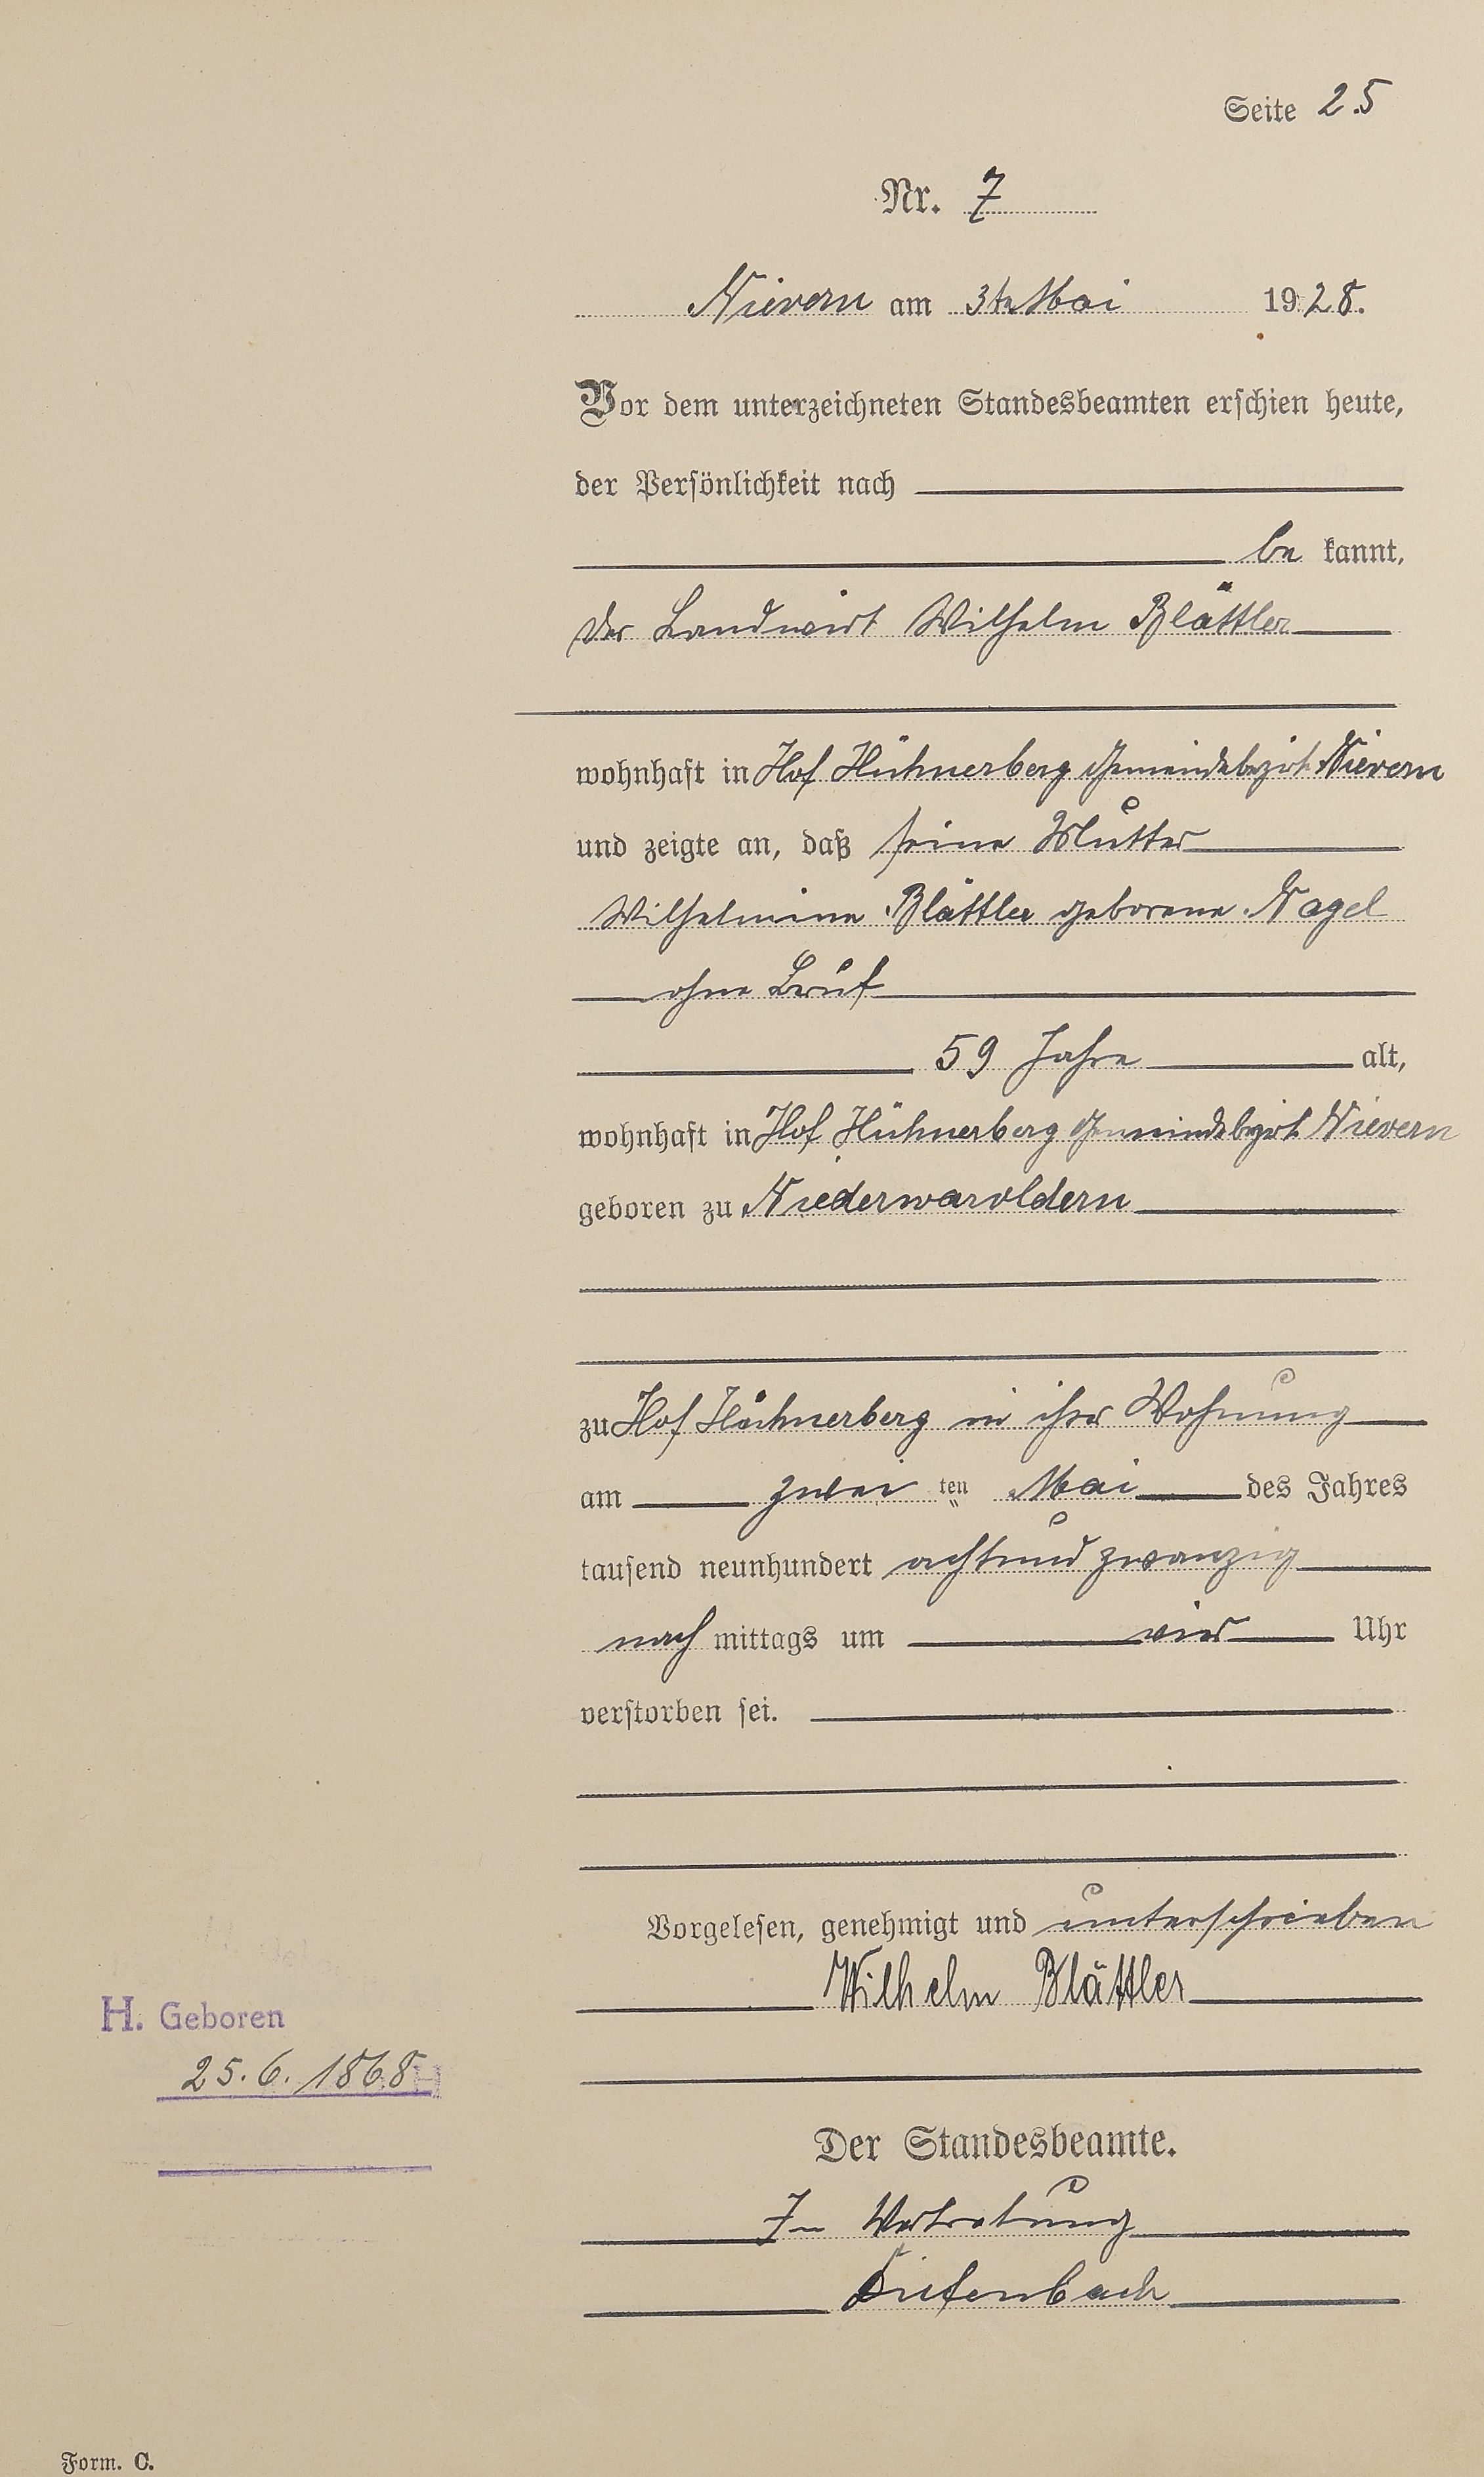 Seite 25
Nr. 7
Nievern am 3ten Mai 1928.
Vor dem unterzeichneten Standesbeamten erschien heute,
der Persönlichkeit nach
be kannt,
der Landwirt Wilhelm Blättler
wohnhaft in Hof Hühnerberg Gemeindebezirk Nievern
und zeigte an, daß seine Mutter
Wilhelmine Blättler geborene Nagel
ohne Beruf
59 Jahre alt,
wohnhaft in Hof Hühnerberg Gemeindebezirk Nievern
geboren zu Niederwaroldern
zu Hof Hühnerberg in ihrer Wohnung
am zwei ten Mai des Jahres
tausend neunhundert achtundzwanzig
nach mittags um vier Uhr
verstorben sei.
Vorgelesen, genehmigt und unterschrieben
Wilhelm Blättler
H. Geboren
25.6.1868
Der Standesbeamte.
In Vertretung
Form. C.